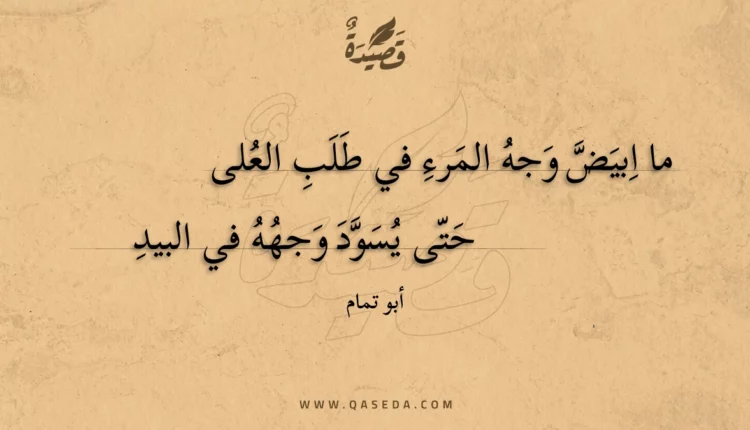 قَصِيْدَةٌ
ما اِبيَضَّ وَجهُ المَرءِ في طَلَبِ العُلى
حَتّى يُسَوَّدَ وَجهُهُ في البيدِ
أبو تمام
WWW.QASEDA.COM